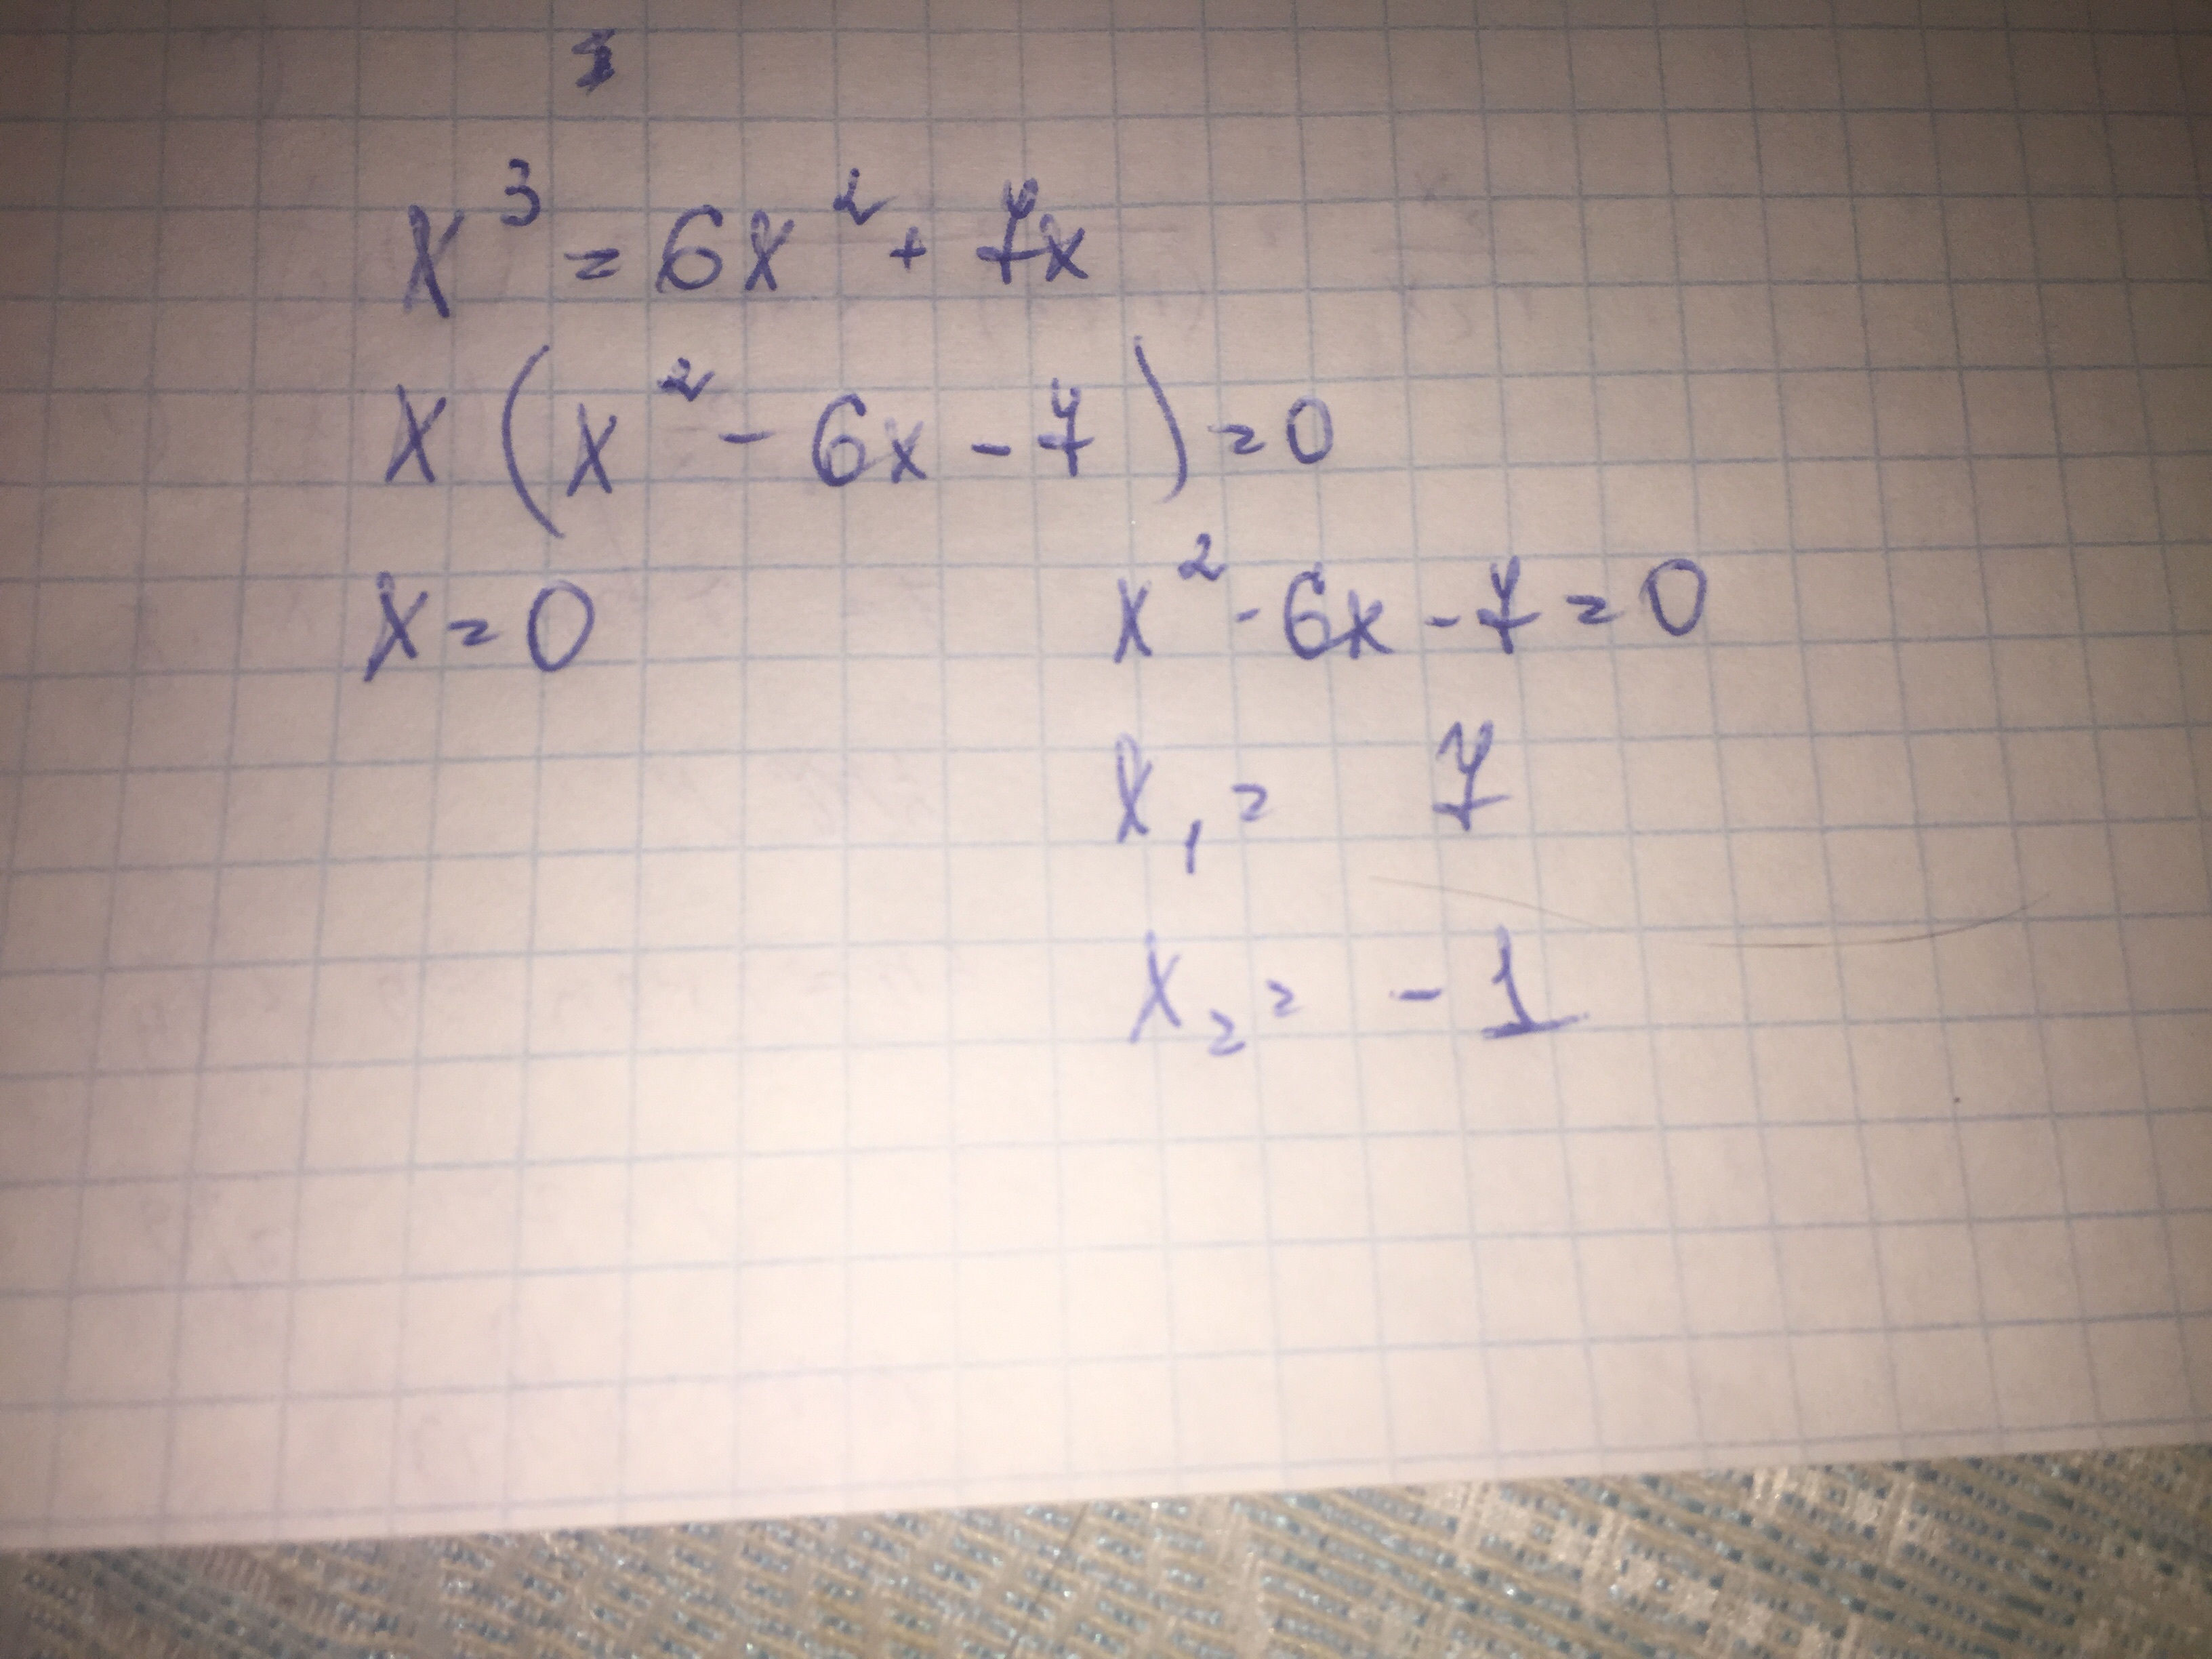 x³ = 6x² + 7x
x(x² - 6x - 7) = 0
x = 0 x² - 6x - 7 = 0
x₁ = 7
x₂ = - 1